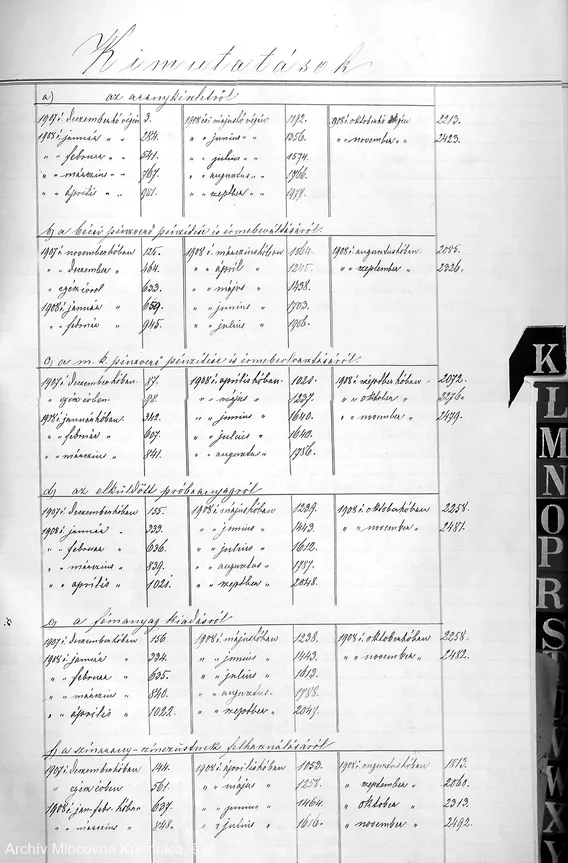 Kimutatások
a) az aranykészletről
1907 i. dezemberhó végén 3. 1908 i. májushó végén 1192. 1908 i. oktoberhó végén 2213.
1908 i. január " " 284. " " junius " " 1356. " " november " " 2423.
" " februar " " 541. " " julius " " 1574.
" " márczius " " 767. " " augusztus " " 1766.
" " április " " 951. " " szeptber " " 1979.
b) a bécsi pénzverő pénzítési és érmebeváltásáról.
1907 i. novemberhóban 125. 1908 i. márcziushóban 1064. 1908 i. augusztushóban 2085.
" " dezember " 464. " " április " 1245. " " szeptember " 2326.
" egész évről 633. " " május " 1438.
1908 i. január " 659. " " junius " 1703.
" " február " 945. " " julius " 1906.
c) a m. k. pénzverő pénzítési és érmebeolvasztásáról.
1907 i. dezemberhóban 87. 1908 i. áprilishóban 1020. 1908 i. szeptberhóban 2072.
" egész évben 98. " " május " 1237. " " oktober " 2276.
1908 i. januárhóban 342. " " junius " 1640. " " november " 2479.
" " február " 607. " " julius " 1640.
" " márczius " 841. " " augusztus " 1786.
d) az elküldött próbaanyagról
1907 i. dezemberhóban 155. 1908 i. májushóban 1239. 1908 i. oktoberhóban 2258.
1908 i. január " 333. " " junius " 1443. " " november " 2481.
" " február " 636. " " julius " 1612.
" " márczius " 839. " " augusztus " 1787.
" " április " 1021. " " szeptber " 2048.
e) a fémanyag kiadásról
1907 i. dezemberhóban 156. 1908 i. májushóban 1238. 1908 i. oktoberhóban 2258.
1908 i. január " 334. " " junius " 1443. " " november " 2482.
" " február " 635. " " julius " 1613.
" " márczius " 840. " " augusztus " 1788.
" " április " 1022. " " szeptber " 2047.
f) a színarany-színezüstnek felhasználásáról
1907 i. dezemberhóban 144. 1908 i. áprilishóban 1053. 1908 i. augusztushóban 1813.
" egész évben 561. " " május " 1258. " szeptember " 2060.
1908 i. jan-febr. hóban 637. " " junius " 1464. " oktober " 2313.
" " márczius " 848. " " julius " 1616. " november " 2492.
K
L
M
N
O
P
R
S
X
Y
Archív Mincovne Kremnica, š.p.